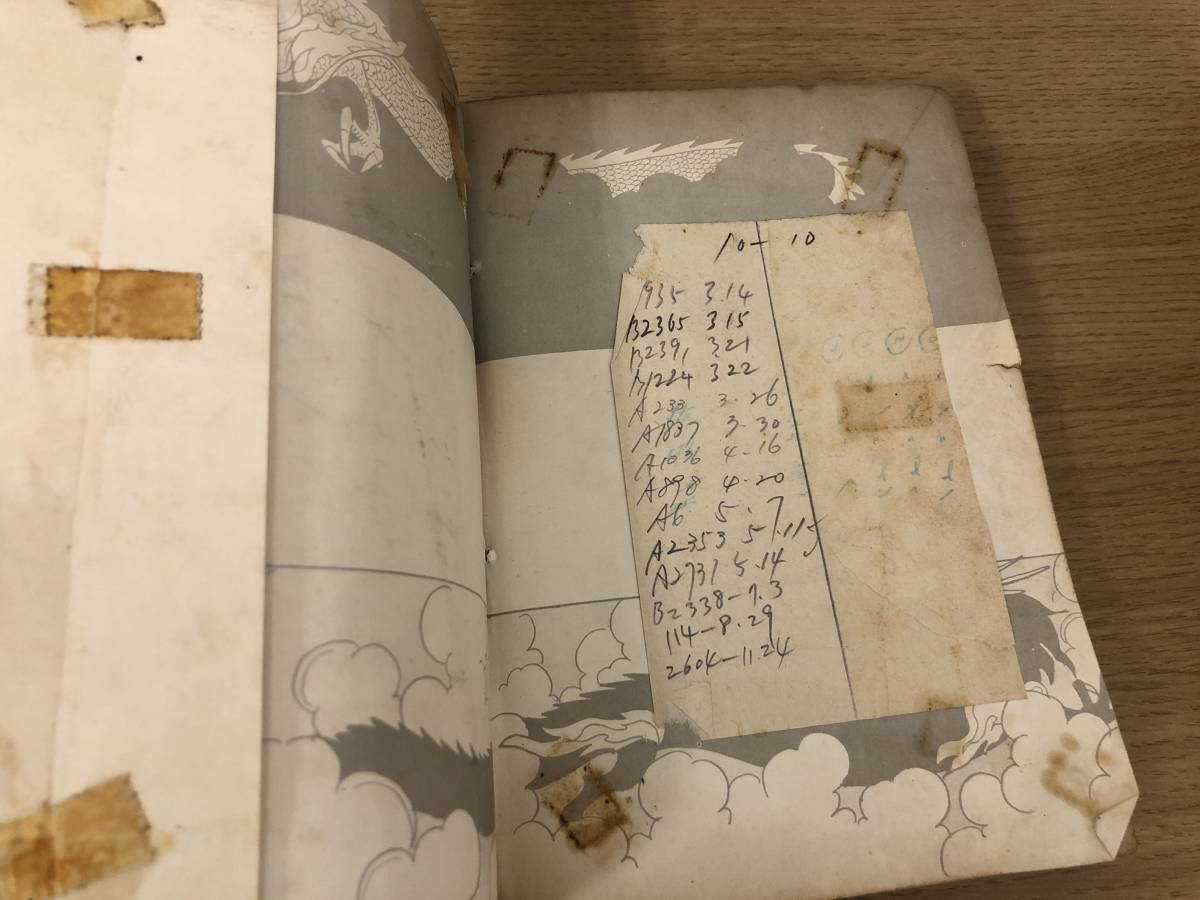 10 - 10
935 3.14
B2365 3.15
B2391 3.21
B1224 3.22
A233 3.26
A1837 3.30
A1036 4-16
A898 4.20
A6 5.7
A2353 5.115
A2731 5.14
B2338-7.3
114-8.29
2604-11.24